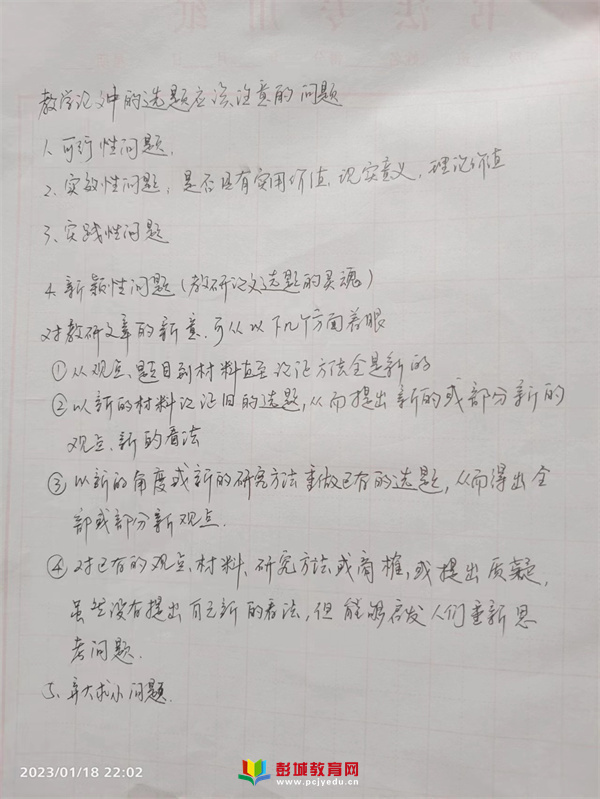 书法专用纸
教学论文中的选题应该注意的问题
1、可行性问题.
2、实效性问题:是否具有实用价值、现实意义、理论价值
3、实践性问题
4、新颖性问题(教研论文选题的灵魂)
对教研文章的新意.可从以下几个方面着眼
①从观点、题目到材料直至论证方法全是新的
②以新的材料论证旧的选题,从而提出新的或部分新的
观点、新的看法
③以新的角度或新的研究方法重做已有的选题,从而得出全
部或部分新观点.
④对已有的观点、材料、研究方法或商榷,或提出质疑,
虽然没有提出自己新的看法,但能够启发人们重新思
考问题.
5、弃大求小问题.
2023/01/18 22:02
彭城教育网
www.pcjyedu.cn